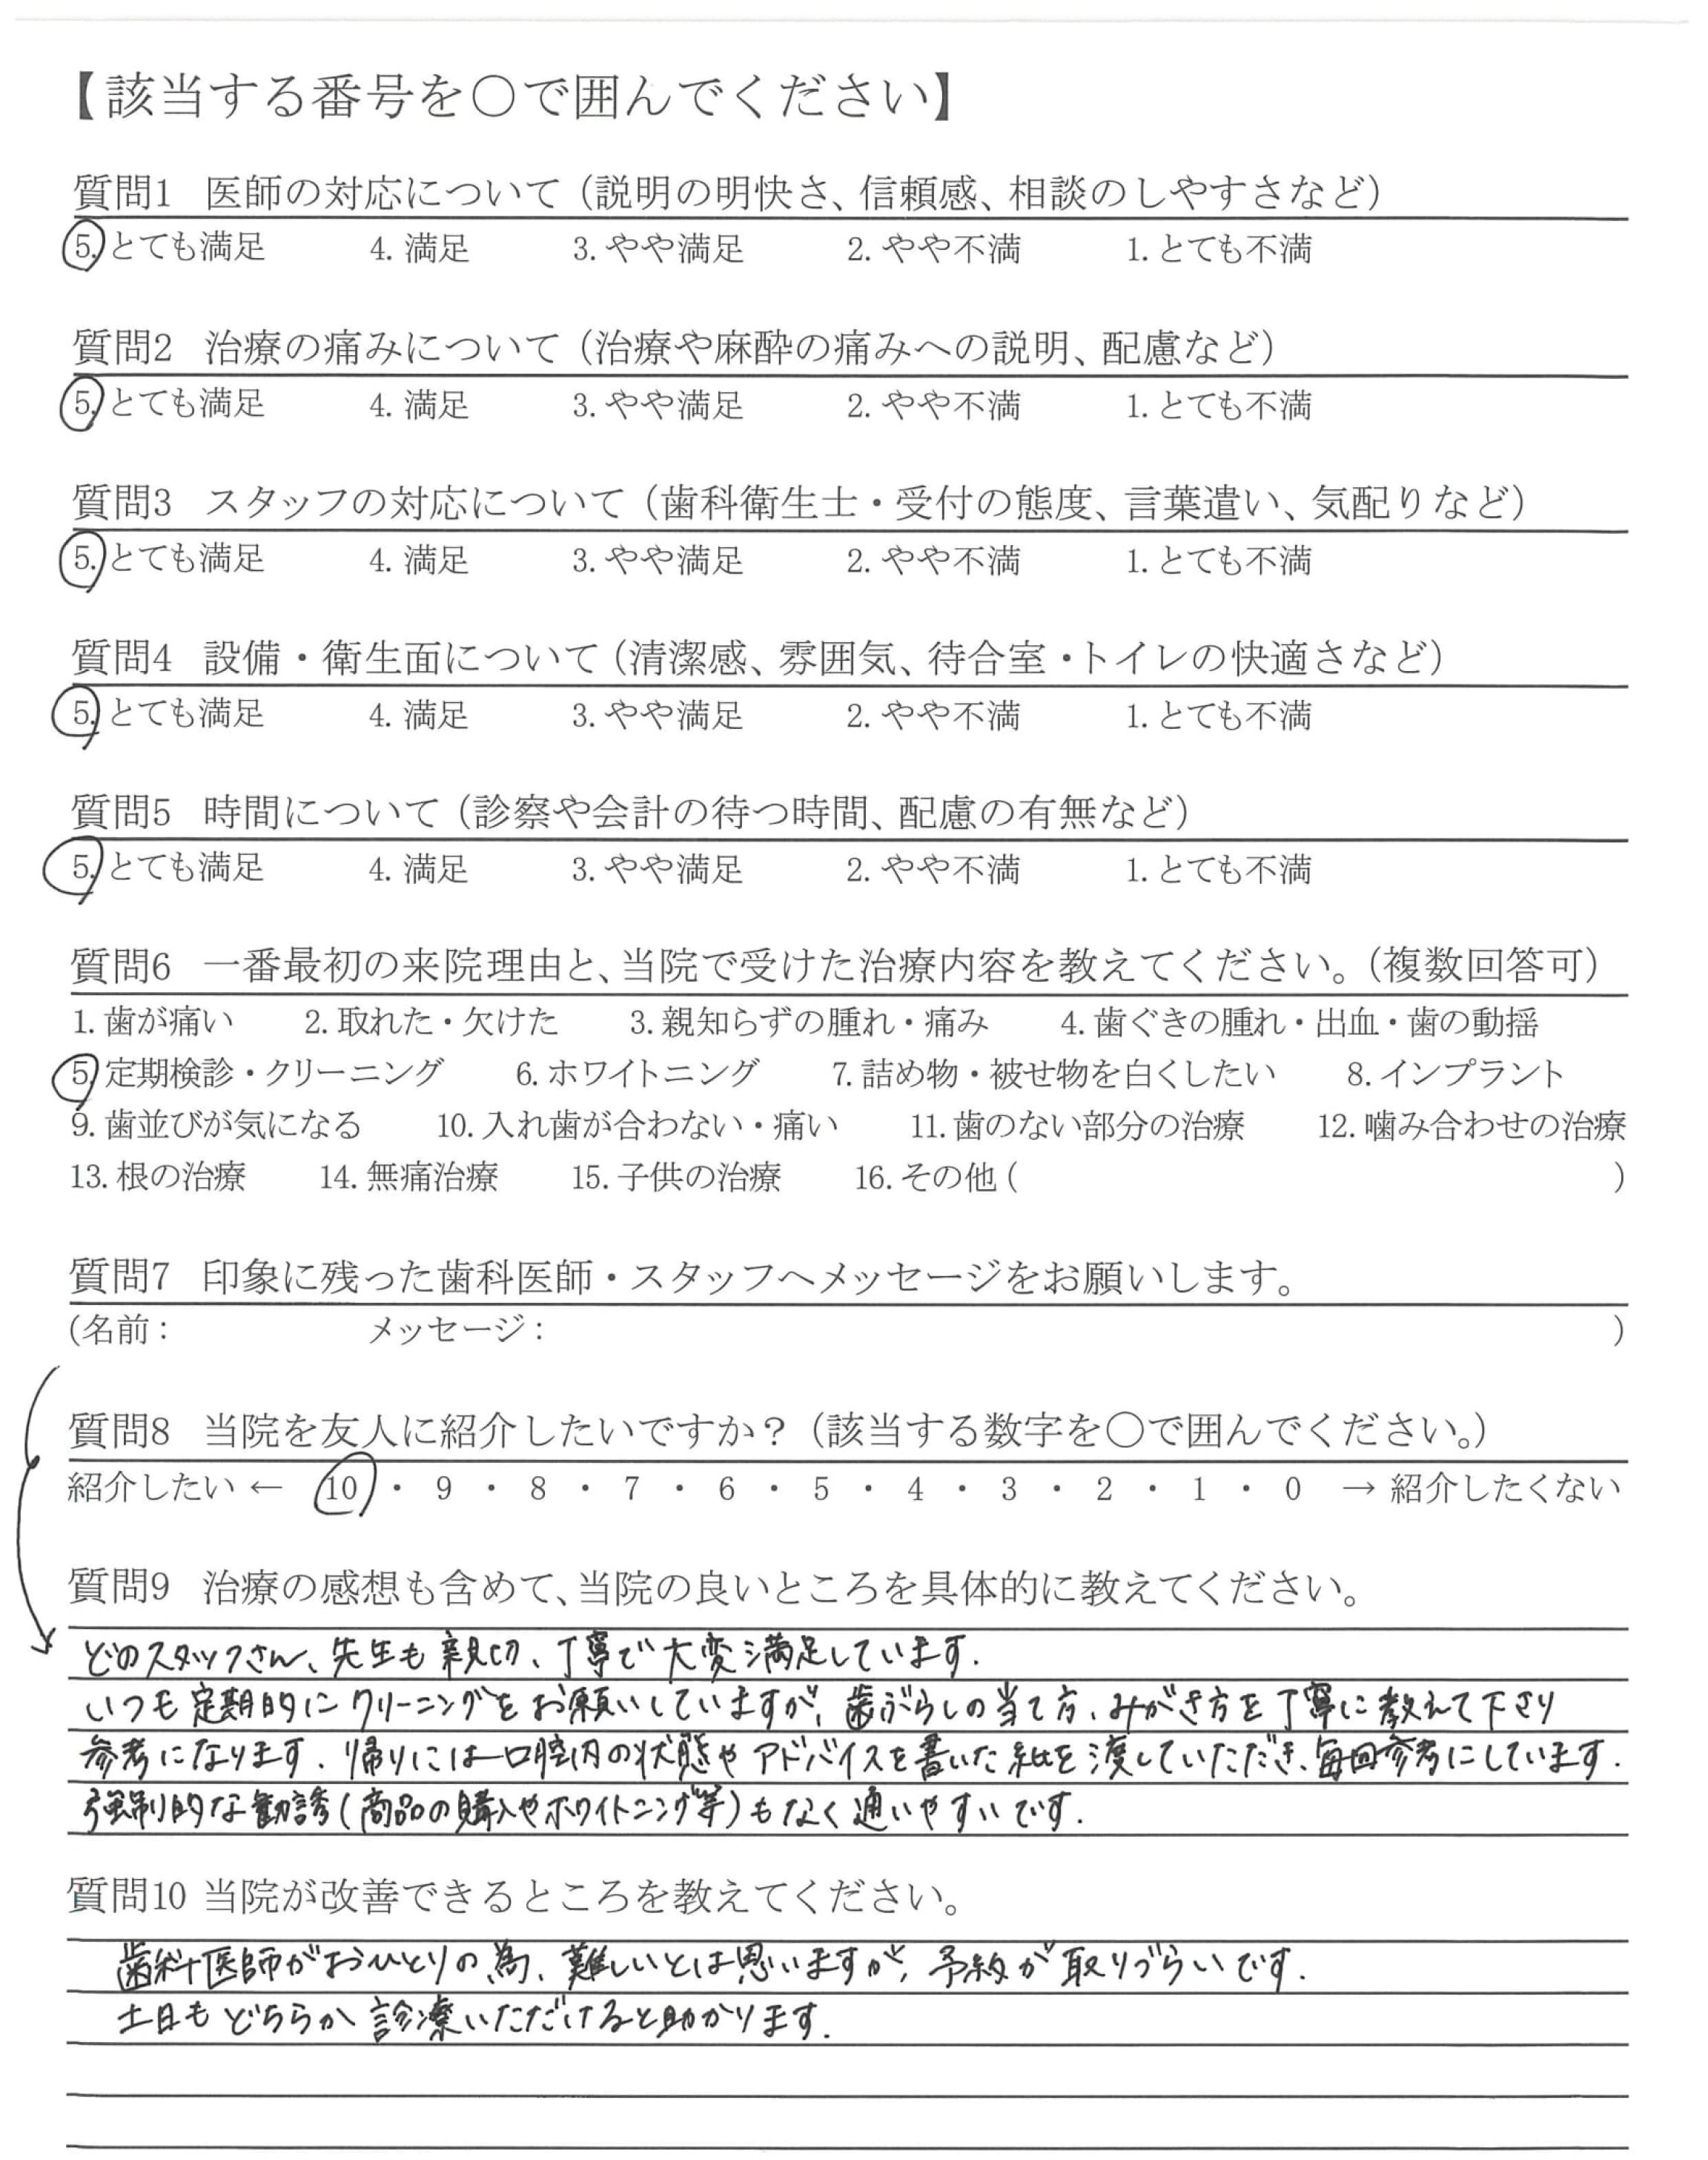 【該当する番号を○で囲んでください】
質問1 医師の対応について（説明の明快さ、信頼感、相談のしやすさなど）
5. とても満足 4. 満足 3. やや満足 2. やや不満 1. とても不満
質問2 治療の痛みについて（治療や麻酔の痛みへの説明、配慮など）
5. とても満足 4. 満足 3. やや満足 2. やや不満 1. とても不満
質問3 スタッフの対応について（歯科衛生士・受付の態度、言葉遣い、気配りなど）
5. とても満足 4. 満足 3. やや満足 2. やや不満 1. とても不満
質問4 設備・衛生面について（清潔感、雰囲気、待合室・トイレの快適さなど）
5. とても満足 4. 満足 3. やや満足 2. やや不満 1. とても不満
質問5 時間について（診察や会計の待つ時間、配慮の有無など）
5. とても満足 4. 満足 3. やや満足 2. やや不満 1. とても不満
質問6 一番最初の来院理由と、当院で受けた治療内容を教えてください。（複数回答可）
1. 歯が痛い 2. 取れた・欠けた 3. 親知らずの腫れ・痛み 4. 歯ぐきの腫れ・出血・歯の動揺
5. 定期検診・クリーニング 6. ホワイトニング 7. 詰め物・被せ物を白くしたい 8. インプラント
9. 歯並びが気になる 10. 入れ歯が合わない・痛い 11. 歯のない部分の治療 12. 噛み合わせの治療
13. 根の治療 14. 無痛治療 15. 子供の治療 16. その他 ( )
質問7 印象に残った歯科医師・スタッフへメッセージをお願いします。
(名前： メッセージ： )
質問8 当院を友人に紹介したいですか？（該当する数字を○で囲んでください。）
紹介したい ← 10 ・ 9 ・ 8 ・ 7 ・ 6 ・ 5 ・ 4 ・ 3 ・ 2 ・ 1 ・ 0 → 紹介したくない
質問9 治療の感想も含めて、当院の良いところを具体的に教えてください。
どのスタッフさん、先生も親切、丁寧で大変満足しています.
いつも定期的にクリーニングをお願いしていますが、歯ぶらしの当て方、みがき方を丁寧に教えて下さり
参考になります. 帰りには口腔内の状態やアドバイスを書いた紙を渡していただき、毎回参考にしています.
強制的な勧誘(商品の購入やホワイトニング等)もなく通いやすいです.
質問10 当院が改善できるところを教えてください。
歯科医師がおひとりの為、難しいとは思いますが、予約が取りづらいです.
土日もどちらか診療いただけると助かります.